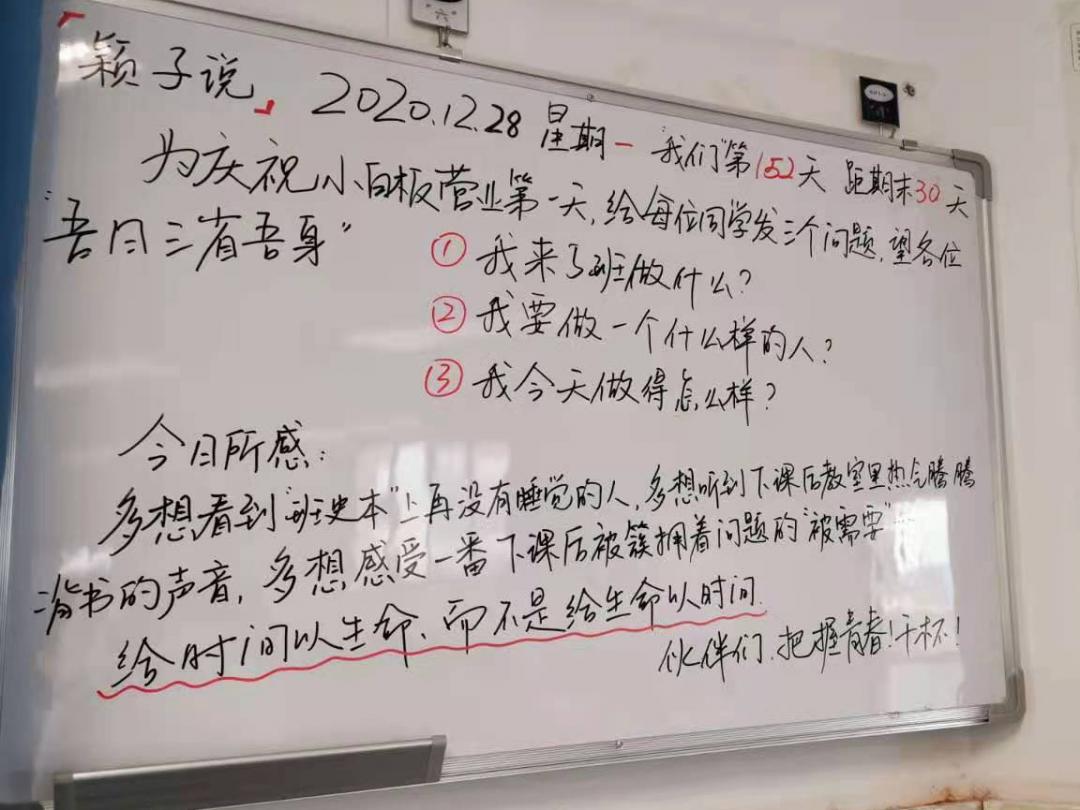 颖子说」 2020.12.28 星期一 “我们”第152天 距期末30天
为庆祝小白板营业第一天，给每位同学发三个问题，望各位
“吾日三省吾身”
① 我来了班做什么？
② 我要做一个什么样的人？
③ 我今天做得怎么样？
今日所感：
多想看到“班史本”上再没有睡觉的人，多想听到下课后教室里热气腾腾
背书的声音，多想感受一番下课后被簇拥着问题的“被需要”…
给时间以生命、而不是给生命以时间.
伙伴们、把握青春！干杯！